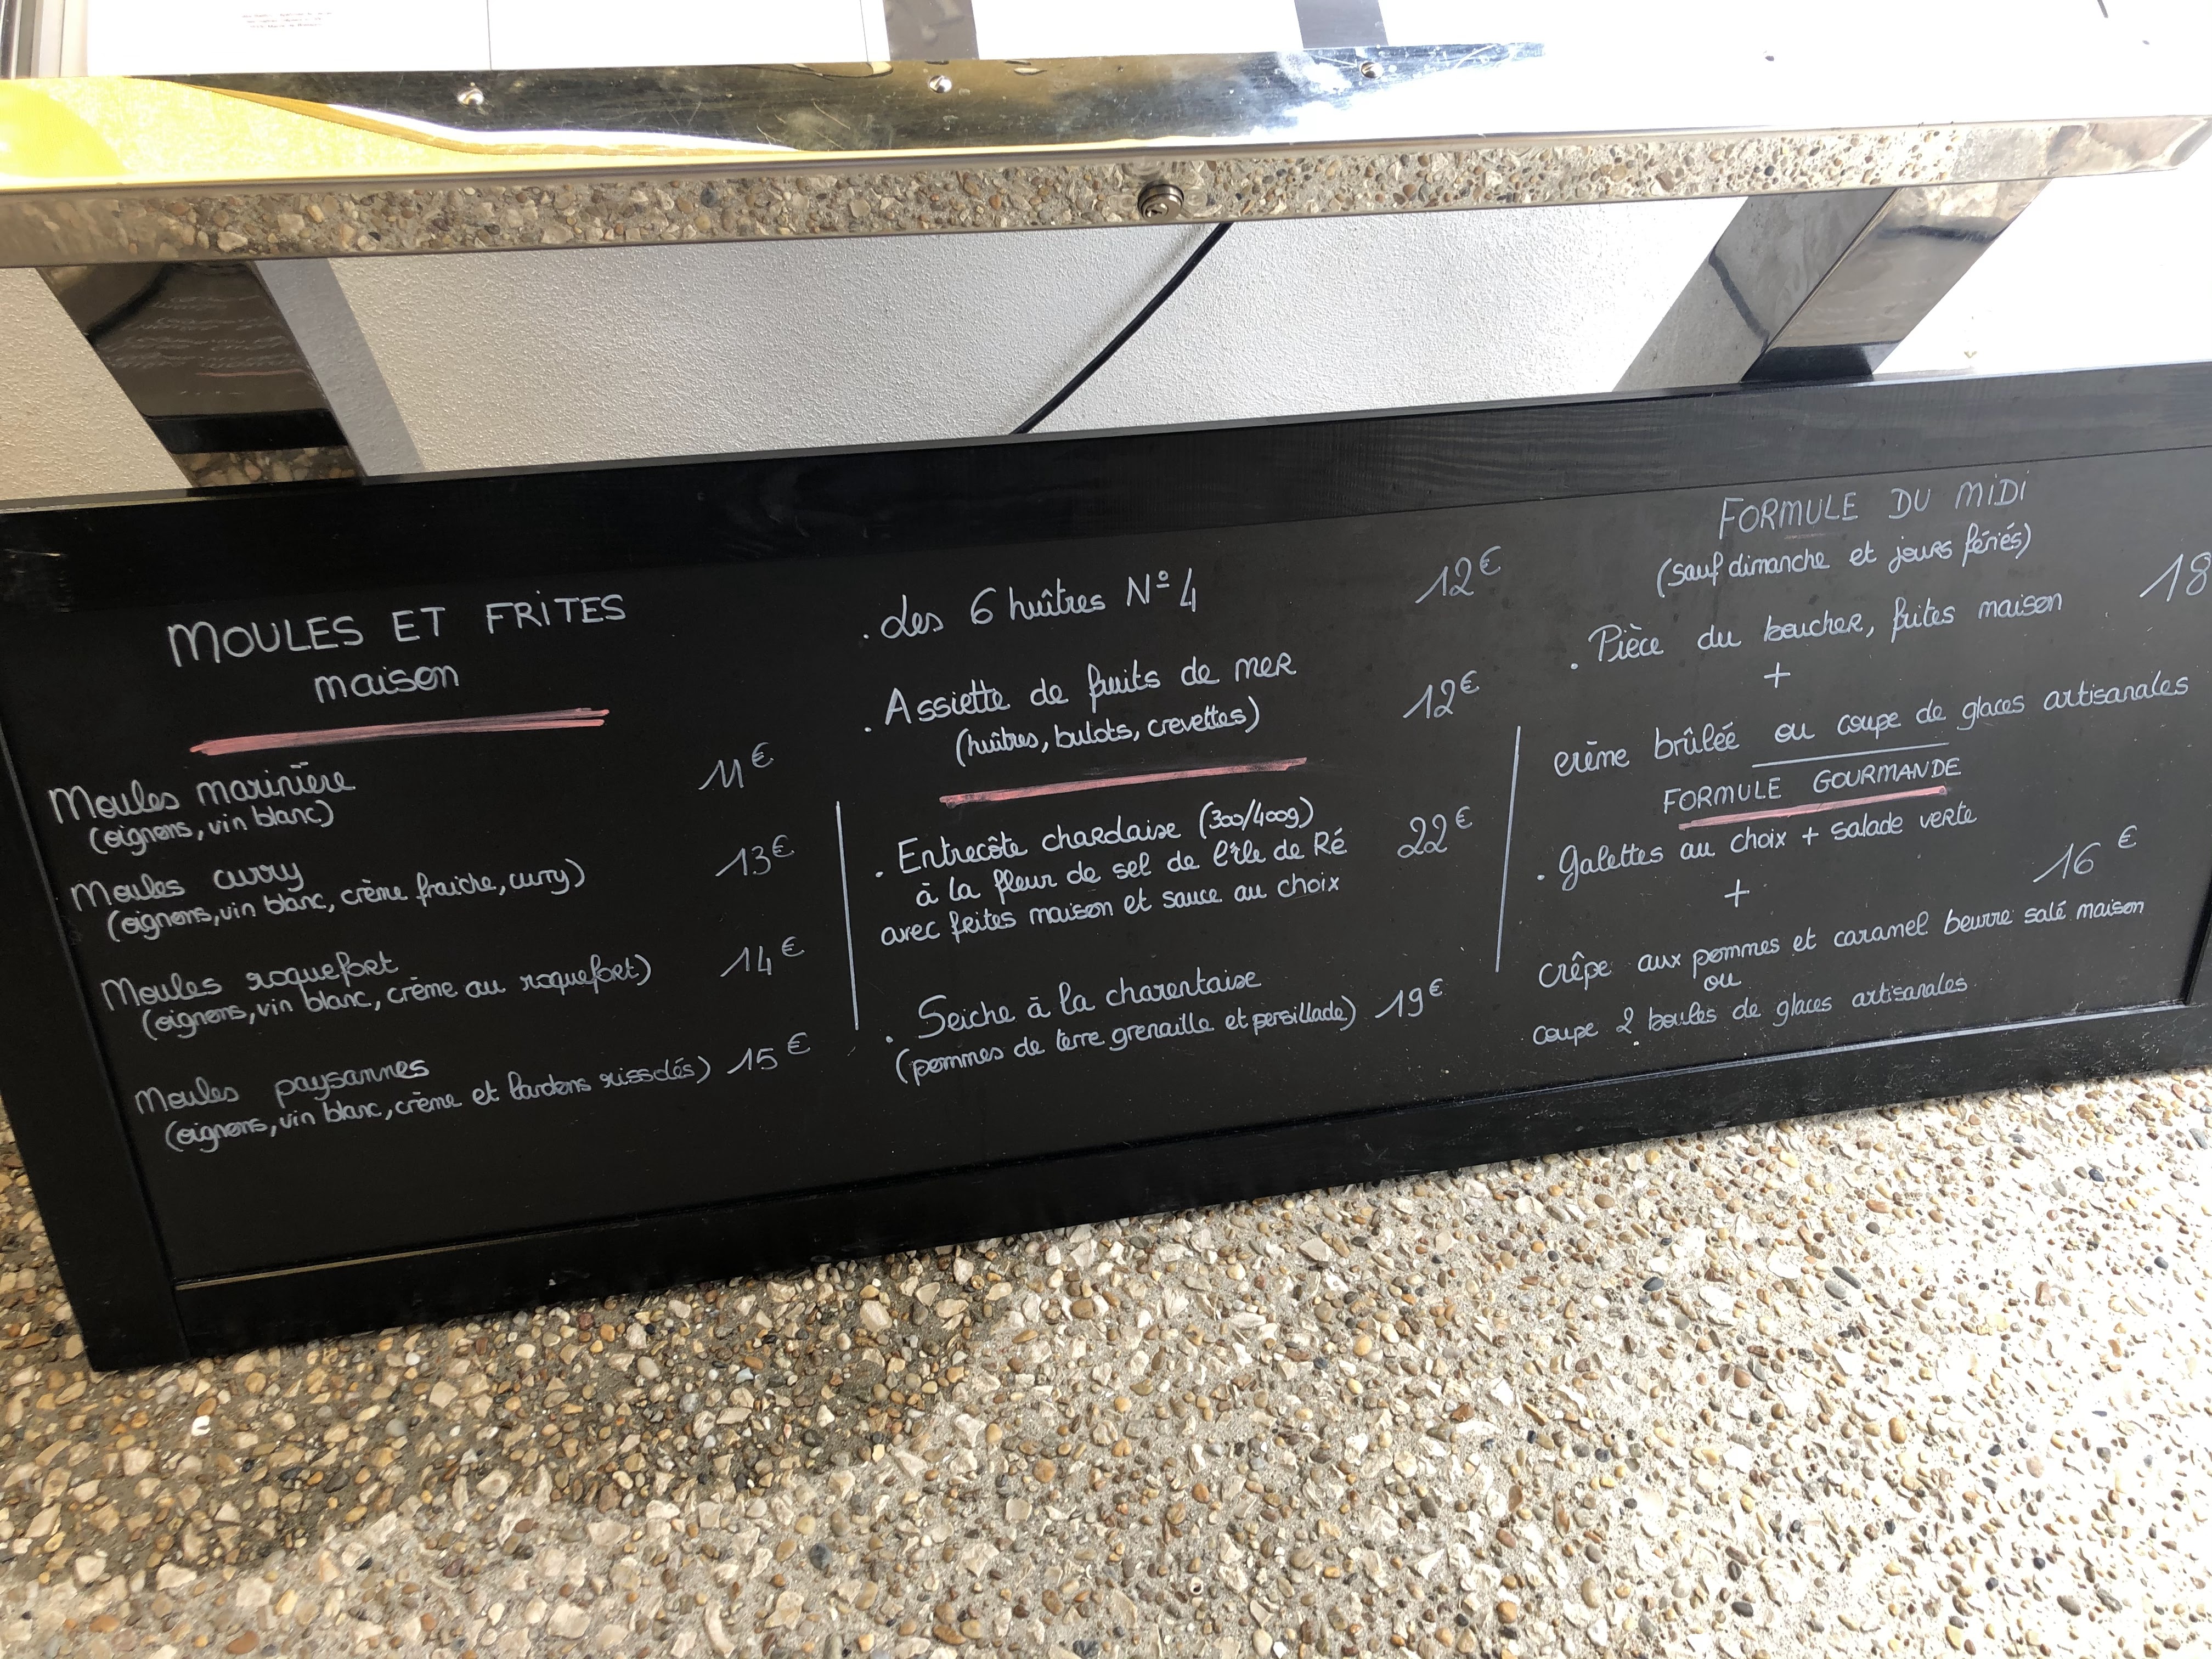 MOULES ET FRITES
maison
Moules marinière 11€
(oignons, vin blanc)
Moules curry 13€
(oignons, vin blanc, crème fraîche, curry)
Moules roquefort 14€
(oignons, vin blanc, crème au roquefort)
Moules paysannes
(oignons, vin blanc, crème et lardons rissolés) 15€
. Les 6 huîtres N°4 12€
. Assiette de fruits de mer 12€
(huîtres, bulots, crevettes)
. Entrecôte chardaise (300/400g) 22€
à la fleur de sel de l'île de Ré
avec frites maison et sauce au choix
. Seiche à la charentaise
(pommes de terre grenaille et persillade) 19€
FORMULE DU MIDI
(sauf dimanche et jours fériés)
. Pièce du boucher, frites maison 18
+
crème brûlée ou coupe de glaces artisanales
FORMULE GOURMANDE
. Galettes au choix + salade verte
+ 16€
crêpe aux pommes et caramel beurre salé maison
ou
coupe 2 boules de glaces artisanales